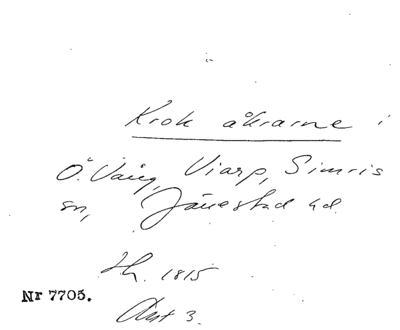 Krok åkrarne i
Ö. Vång, Viarp, Simris
sn, Järrestad hd.
Hh. 1815
Nr 7705.
Akt 3.